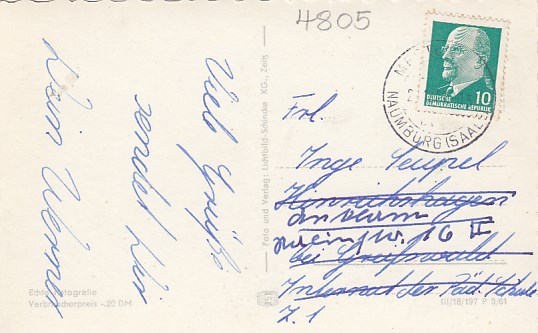 4805
10
DEUTSCHE
DEMOKRATISCHE REPUBLIK
NAUMBURG (SAALE)
Viele Grüße
sendet Dir
Dein Werner
Foto und Verlag: Lichtbild-Schincke KG., Zeitz
Echte Fotografie
Verbraucherpreis -.20 DM
III/18/197 P 3/61
Frl.
Inge Seupel
Hinrichshagen
Anklam
16 II
bei Greifswald
Internat der Päd. Schule
Z. 1